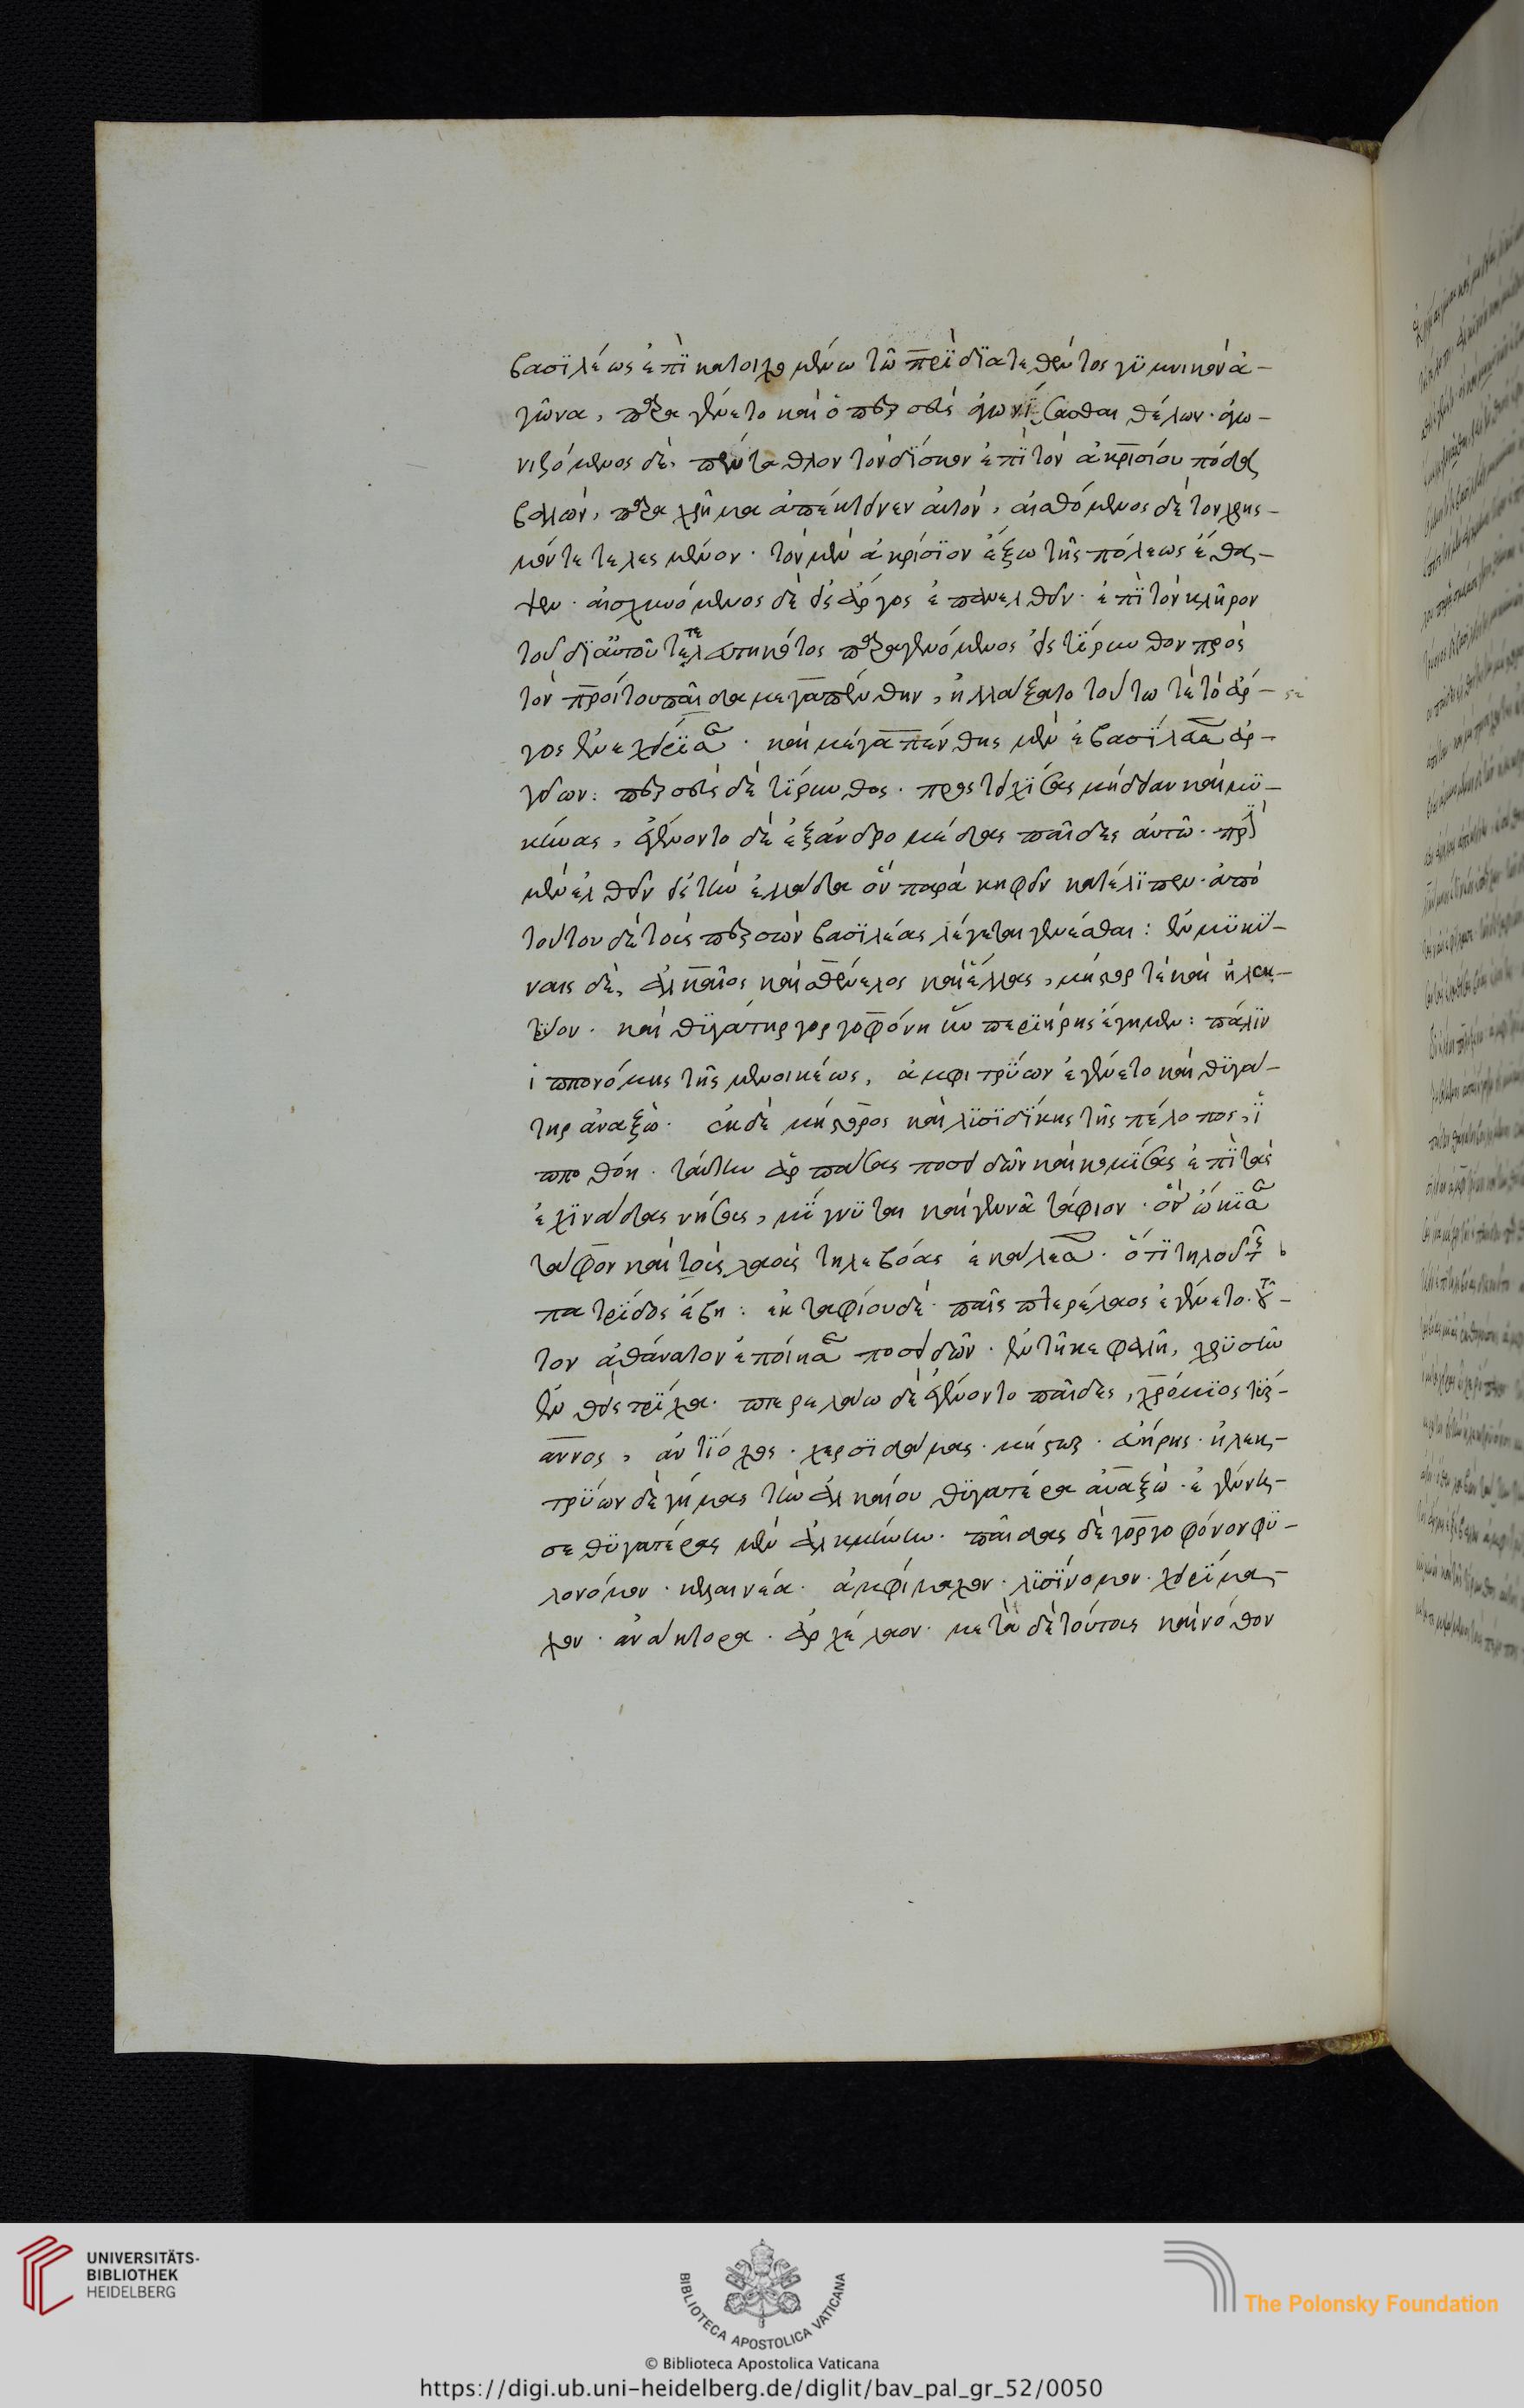 βασϊλέως ἐπὶ κατοιχομένω τῶ πρϊ διατεθέντος γϋμνικὸν ἀ-
γῶνα, παρεγένετο καὶ ὁ περσεὺς ἀγωνίσασθαι θέλων· ἀγω-
νιζόμενος δὲ, πένταθλον τὸν δΐσκον ἐπῒ τὸν ἀκρισίου πόδα
βαλὼν, παραχρῆμα ἀπέκτεινεν αὐτόν, αἰσθόμενος δὲ τὸν χρησ-
μὸν τετελεσμένον· τὸν μὲν ἀκρίσϊον ἔξω τῆς πόλεως ἔθα-
ψεν· αἰσχυνόμενος δὲ εἰς ἄργος ἐπανελθεῖν· ἐπῒ τὸν κλῆρον
τοῦ δϊ αὐτοῦ τετελευτηκότος παραγενόμενος εἰς τΐρυνθον πρὸς
τὸν προίτου παῖδα μεγαπένθην, ἠλλάξατο τούτω τὲ τὸ ἄρ-
γος ἐνεχείρϊσα· καὶ μεγαπένθης μὲν ἐβασΐλευσε ἀρ-
γείων: περσεὺς δὲ τΐρυνθος· προστειχΐσας μήδειαν καὶ μϋ-
κήνας, ἐγένοντο δὲ ἐξ ἀνδρομέδας παῖδες αὐτῶ· πρὶ
μὲν ἐλθεῖν εἰς τὴν ἑλλάδα ὃν παρὰ κηφεῖ κατέλϊπεν· ἀπὸ
τούτου δὲ τοὺς περσῶν βασϊλέας λέγεται γενέσθαι: ἐν μϋκή-
ναις δὲ, ἀλκαῖος καὶ σθένελος καὶ ἕλλας, μήστορ τὲ καὶ ἠλεκ-
τρΰον· καὶ θϋγάτηρ γοργοφόνη ἣν περϊήρης ἔγημεν: πάλϊν
ἱππονόμης τῆς μενοικέως, ἀμφιτρΰων ἐγένετο καὶ θϋγά-
τηρ ἀναξώ· ἐκ δὲ μήστορος καὶ λϋσϊδΐκης τῆς πέλοπος, ϊ
ππο θόη· ταύτην ἁρπάσας ποσειδῶν καὶ κομΐσας ἐπῒ τὰς
ἐχϊνάδας νήσους, μΐγνϋται καὶ γεννᾶ τάφιον· ὃς ὤκϊσε
τάφον καὶ τοὺς λαοὺς τηλεβόας ἐκάλεσε· ὅτϊ τηλοῦ τῆς
πατρΐδος ἔβη: ἐκ ταφίου δὲ παῖς πτερέλαος ἐγένετο· τοῦ-
τον ἀθάνατον ἐποίησε ποσειδῶν· ἐν τῆ κεφαλῆ, χρϋσῆν
ἐνθεὶς τρΐχα· πτερελάω δὲ ἐγένοντο παῖδες, χρόμϊος τΰρ-
αννος, ἀντΐοχος· χερσϊδάμας· μήστωρ· εὐήρης· ἠλεκ-
τρΰων δὲ γήμας τὴν ἀλκαίου θϋγατέρα ἀναξώ· ἐγέννη-
σε θϋγατέρας μὲν ἀλκμήνην· παῖδας δὲ γοργοφόνον φϋ-
λονόμον· κελαινέα· ἀμφίμαχον· λϋσΐνομον· χειρΐμα-
χον· ἀνάκτορα· ἀρχέλαον· μετὰ δὲ τούτους καὶ νόθον
UNIVERSITÄTS-
BIBLIOTHEK
HEIDELBERG
BIBLIOTECA APOSTOLICA VATICANA
The Polonsky Foundation
© Biblioteca Apostolica Vaticana
https://digi.ub.uni-heidelberg.de/diglit/bav_pal_gr_52/0050